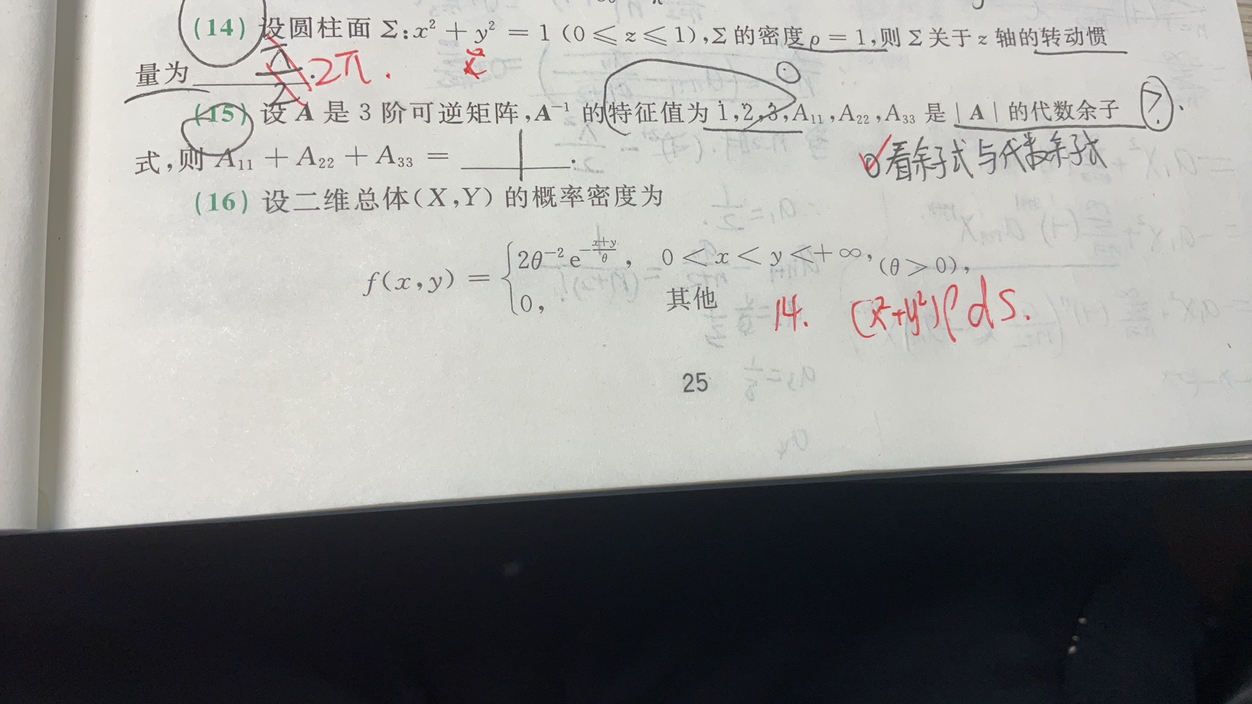 (14) 设圆柱面 Σ:x² + y² = 1 (0 ⩽ z ⩽ 1),Σ 的密度 ρ = 1,则 Σ 关于 z 轴的转动惯
量为 π/2 . 2π.
(15) 设 A 是 3 阶可逆矩阵,A⁻¹ 的特征值为 1,2,3,A₁₁,A₂₂,A₃₃ 是 | A | 的代数余子 ?
式,则 A₁₁ + A₂₂ + A₃₃ = 1 .
看余子式与代数余子式
(16) 设二维总体(X,Y) 的概率密度为
f(x,y) = { 2θ⁻² e^(-(x+y)/θ), 0 < x < y < +∞, (θ > 0),
0, 其他
14. (x²+y²)ρdS.
25